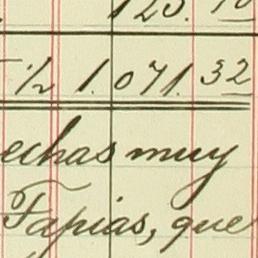 123. 10
1/2 1.071.32
echas muy
Tapias, que